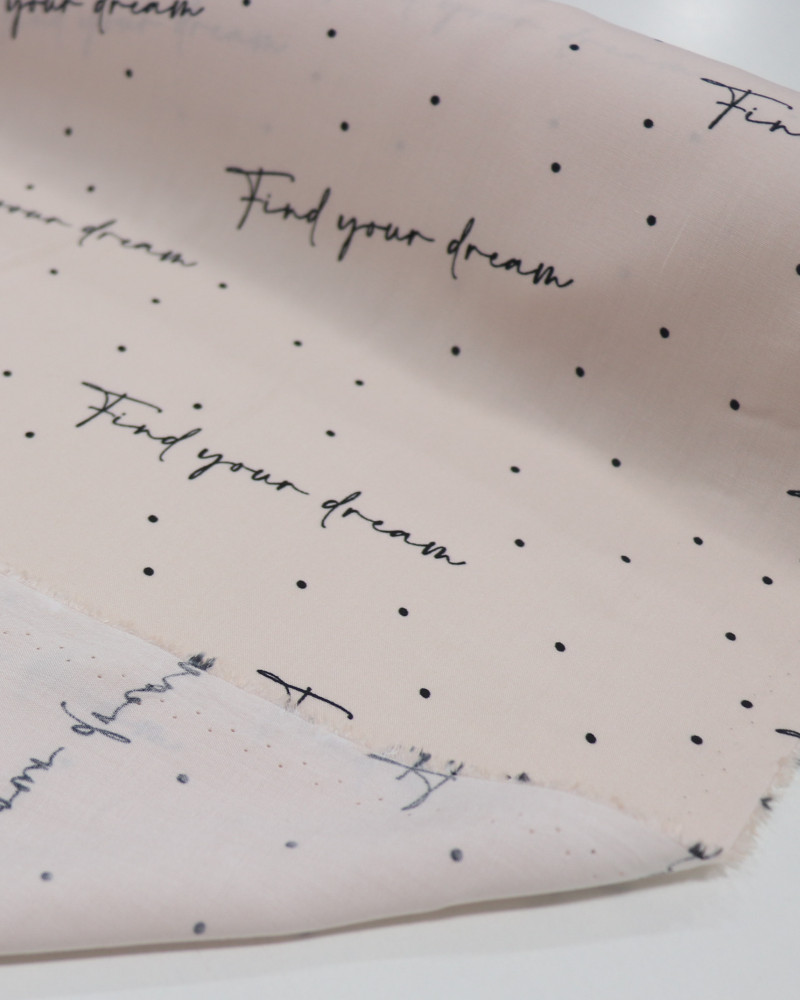 your dream
Fin
Find your dream
your dream
Find your dream